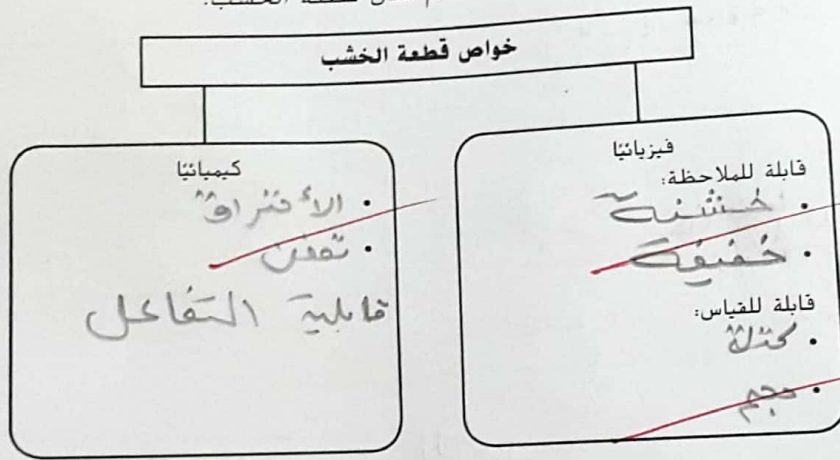 قطعة الخشب.
خواص قطعة الخشب
فيزيائيًا
قابلة للملاحظة:
• خشنة
• خفيفة
قابلة للقياس:
• كتلة
• حجم
كيميائيًا
• الأحتراق
• تعفن
قابلية التفاعل